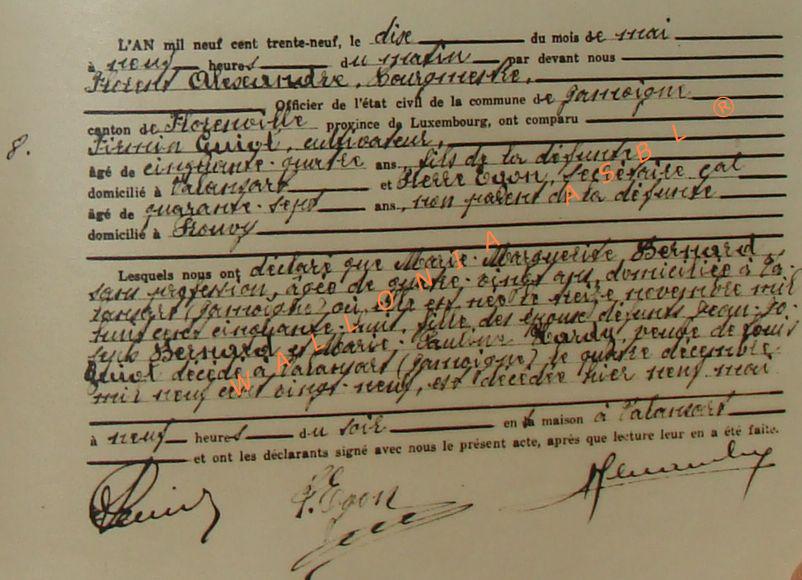 L'AN mil neuf cent trente-neuf, le dix du mois de mai
à neuf heures du matin par devant nous
Florent Alexandre, Bourgmestre,
Officier de l'état civil de la commune de Jamoigne
canton de Florenville province de Luxembourg, ont comparu
8. Firmin Guiot, cultivateur,
âgé de cinquante-quatre ans, fils de la défunte
domicilié à Valansart et Pierre Egon, secrétaire cal
âgé de quarante-sept ans, non parent de la défunte
domicilié à Prouvy
Lesquels nous ont déclaré que Marie-Marguerite Bernard
sans profession, âgée de quatre-vingts ans, domiciliée à Va-
lansart (Jamoigne) où elle est née le treize novembre mil
huit cent cinquante-huit, fille des époux défunts Jean-Jo-
seph Bernard et Marie-Pauline Hardy, veuve de Louis
Guiot décédé à Valansart (Jamoigne) le quatre décembre
mil neuf cent vingt-neuf, est décédée hier neuf mai
à neuf heures du soir en sa maison à Valansart
et ont les déclarants signé avec nous le présent acte, après que lecture leur en a été faite.
P. Egon
WALLONIA ASBL ®